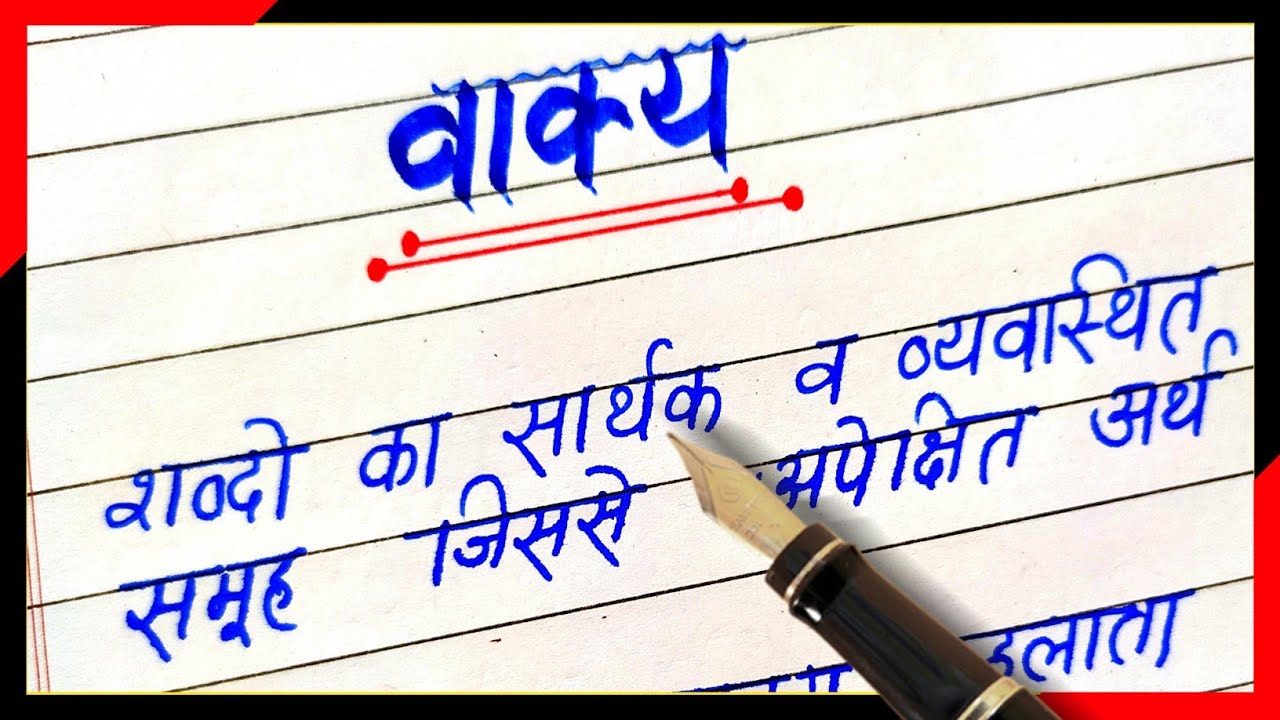 वाक्य
शब्दो का सार्थक व व्यवास्थित
समूह जिससे अपेक्षित अर्थ